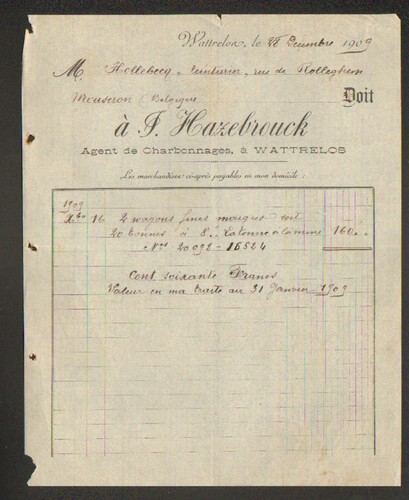 Wattrelos, le 28 Décembre 1909
M. Hollebecq, teinturier, rue de Rolleghem
Mouscron (Belgique) Doit
à F. Hazebrouck
Agent de Charbonnages, à WATTRELOS
Les marchandises ci-après payables en mon domicile :
1909
Xbre 16 2 wagons fines maigres soit
20 tonnes à 8. la tonne à la mine 160
Nos 20092 - 16524
Cent soixante Francs
Valeur en ma traite au 31 Janvier 1909